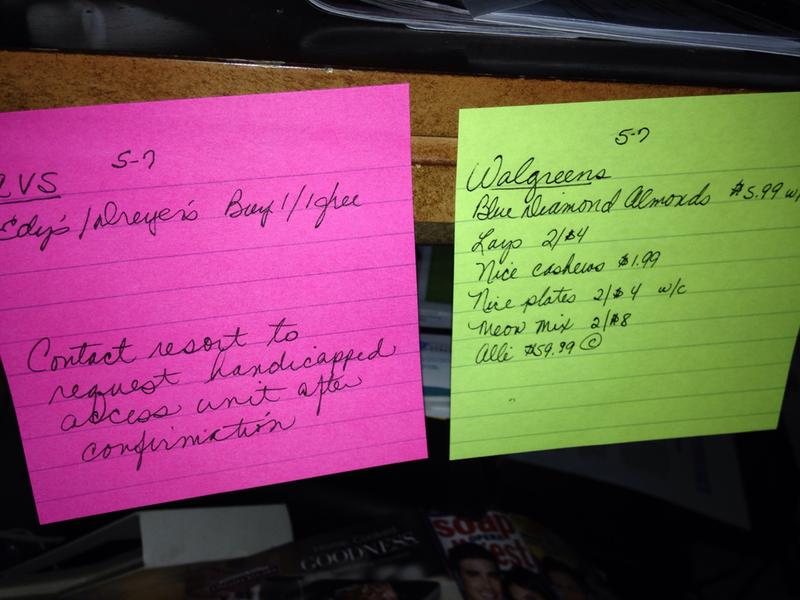 5-7
CVS
Edy's / Dreyer's Buy 1/1 free
Contact resort to
request handicapped
access unit after
confirmation
5-7
Walgreens
Blue Diamond Almonds $5.99 w/
Lays 2/$4
Nice cashews $1.99
Nice plates 2/$4 w/c
Meow Mix 2/$8
Alli $59.99 ©
GOODNESS
soap
OPERA
digest!